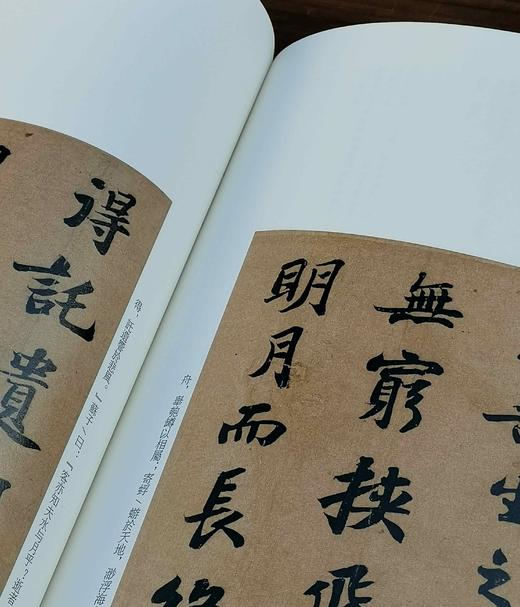 生之
無窮挾飛
明月而長終
舟，舉匏罇以相屬；寄蜉/蝣於天地，渺浮海
得託遺
得，託遺響於悲風。』蘇子/曰：『客亦知夫水与月乎？逝者